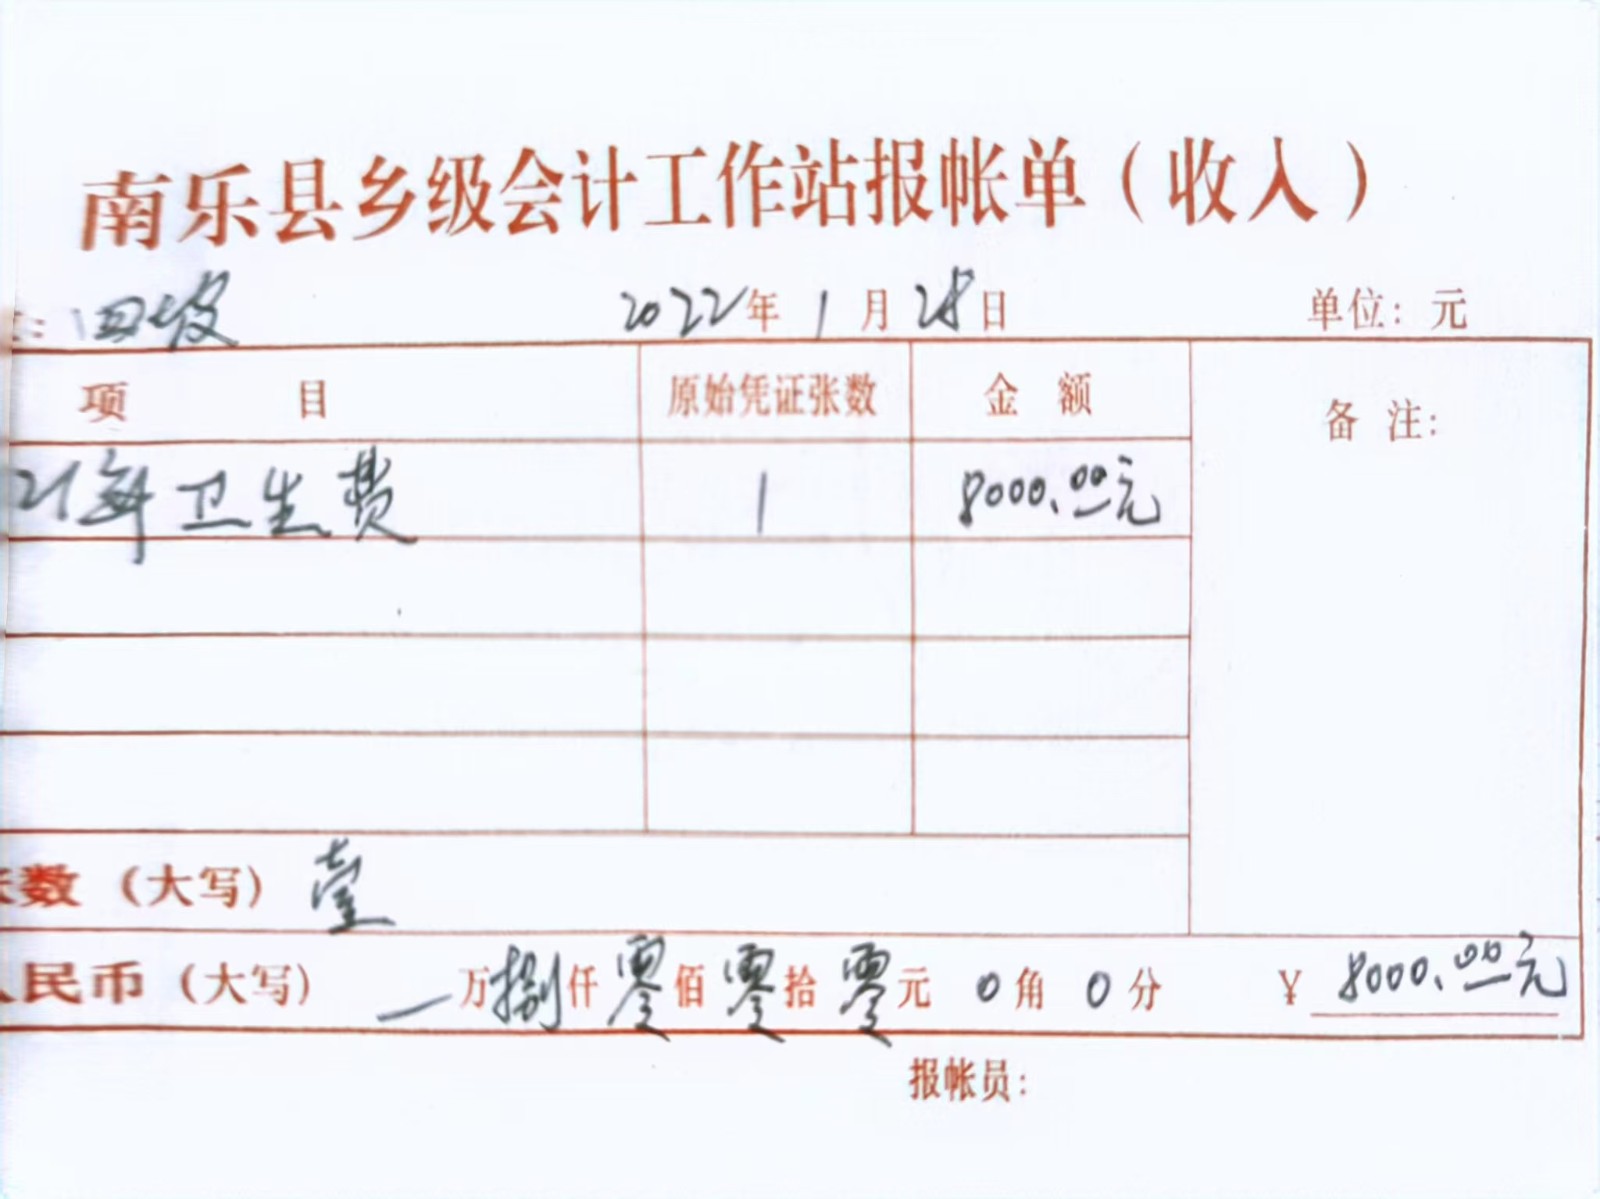 南乐县乡级会计工作站报帐单（收入）
: 2022年 1月 28日 单位：元
项 目 原始凭证张数 金 额 备 注：
21年卫生费 1 8000.00元
数（大写） 壹
民币（大写） 一万捌仟零佰零拾零元0角0分 ¥ 8000.00元
报帐员：